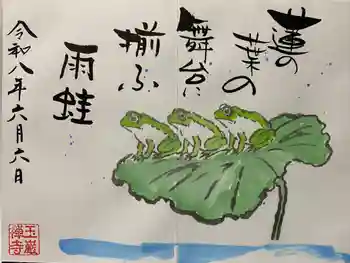 蓮の
葉の
舞台に
揃ふ
雨蛙
令和八年六月六日
玉巌
禅寺